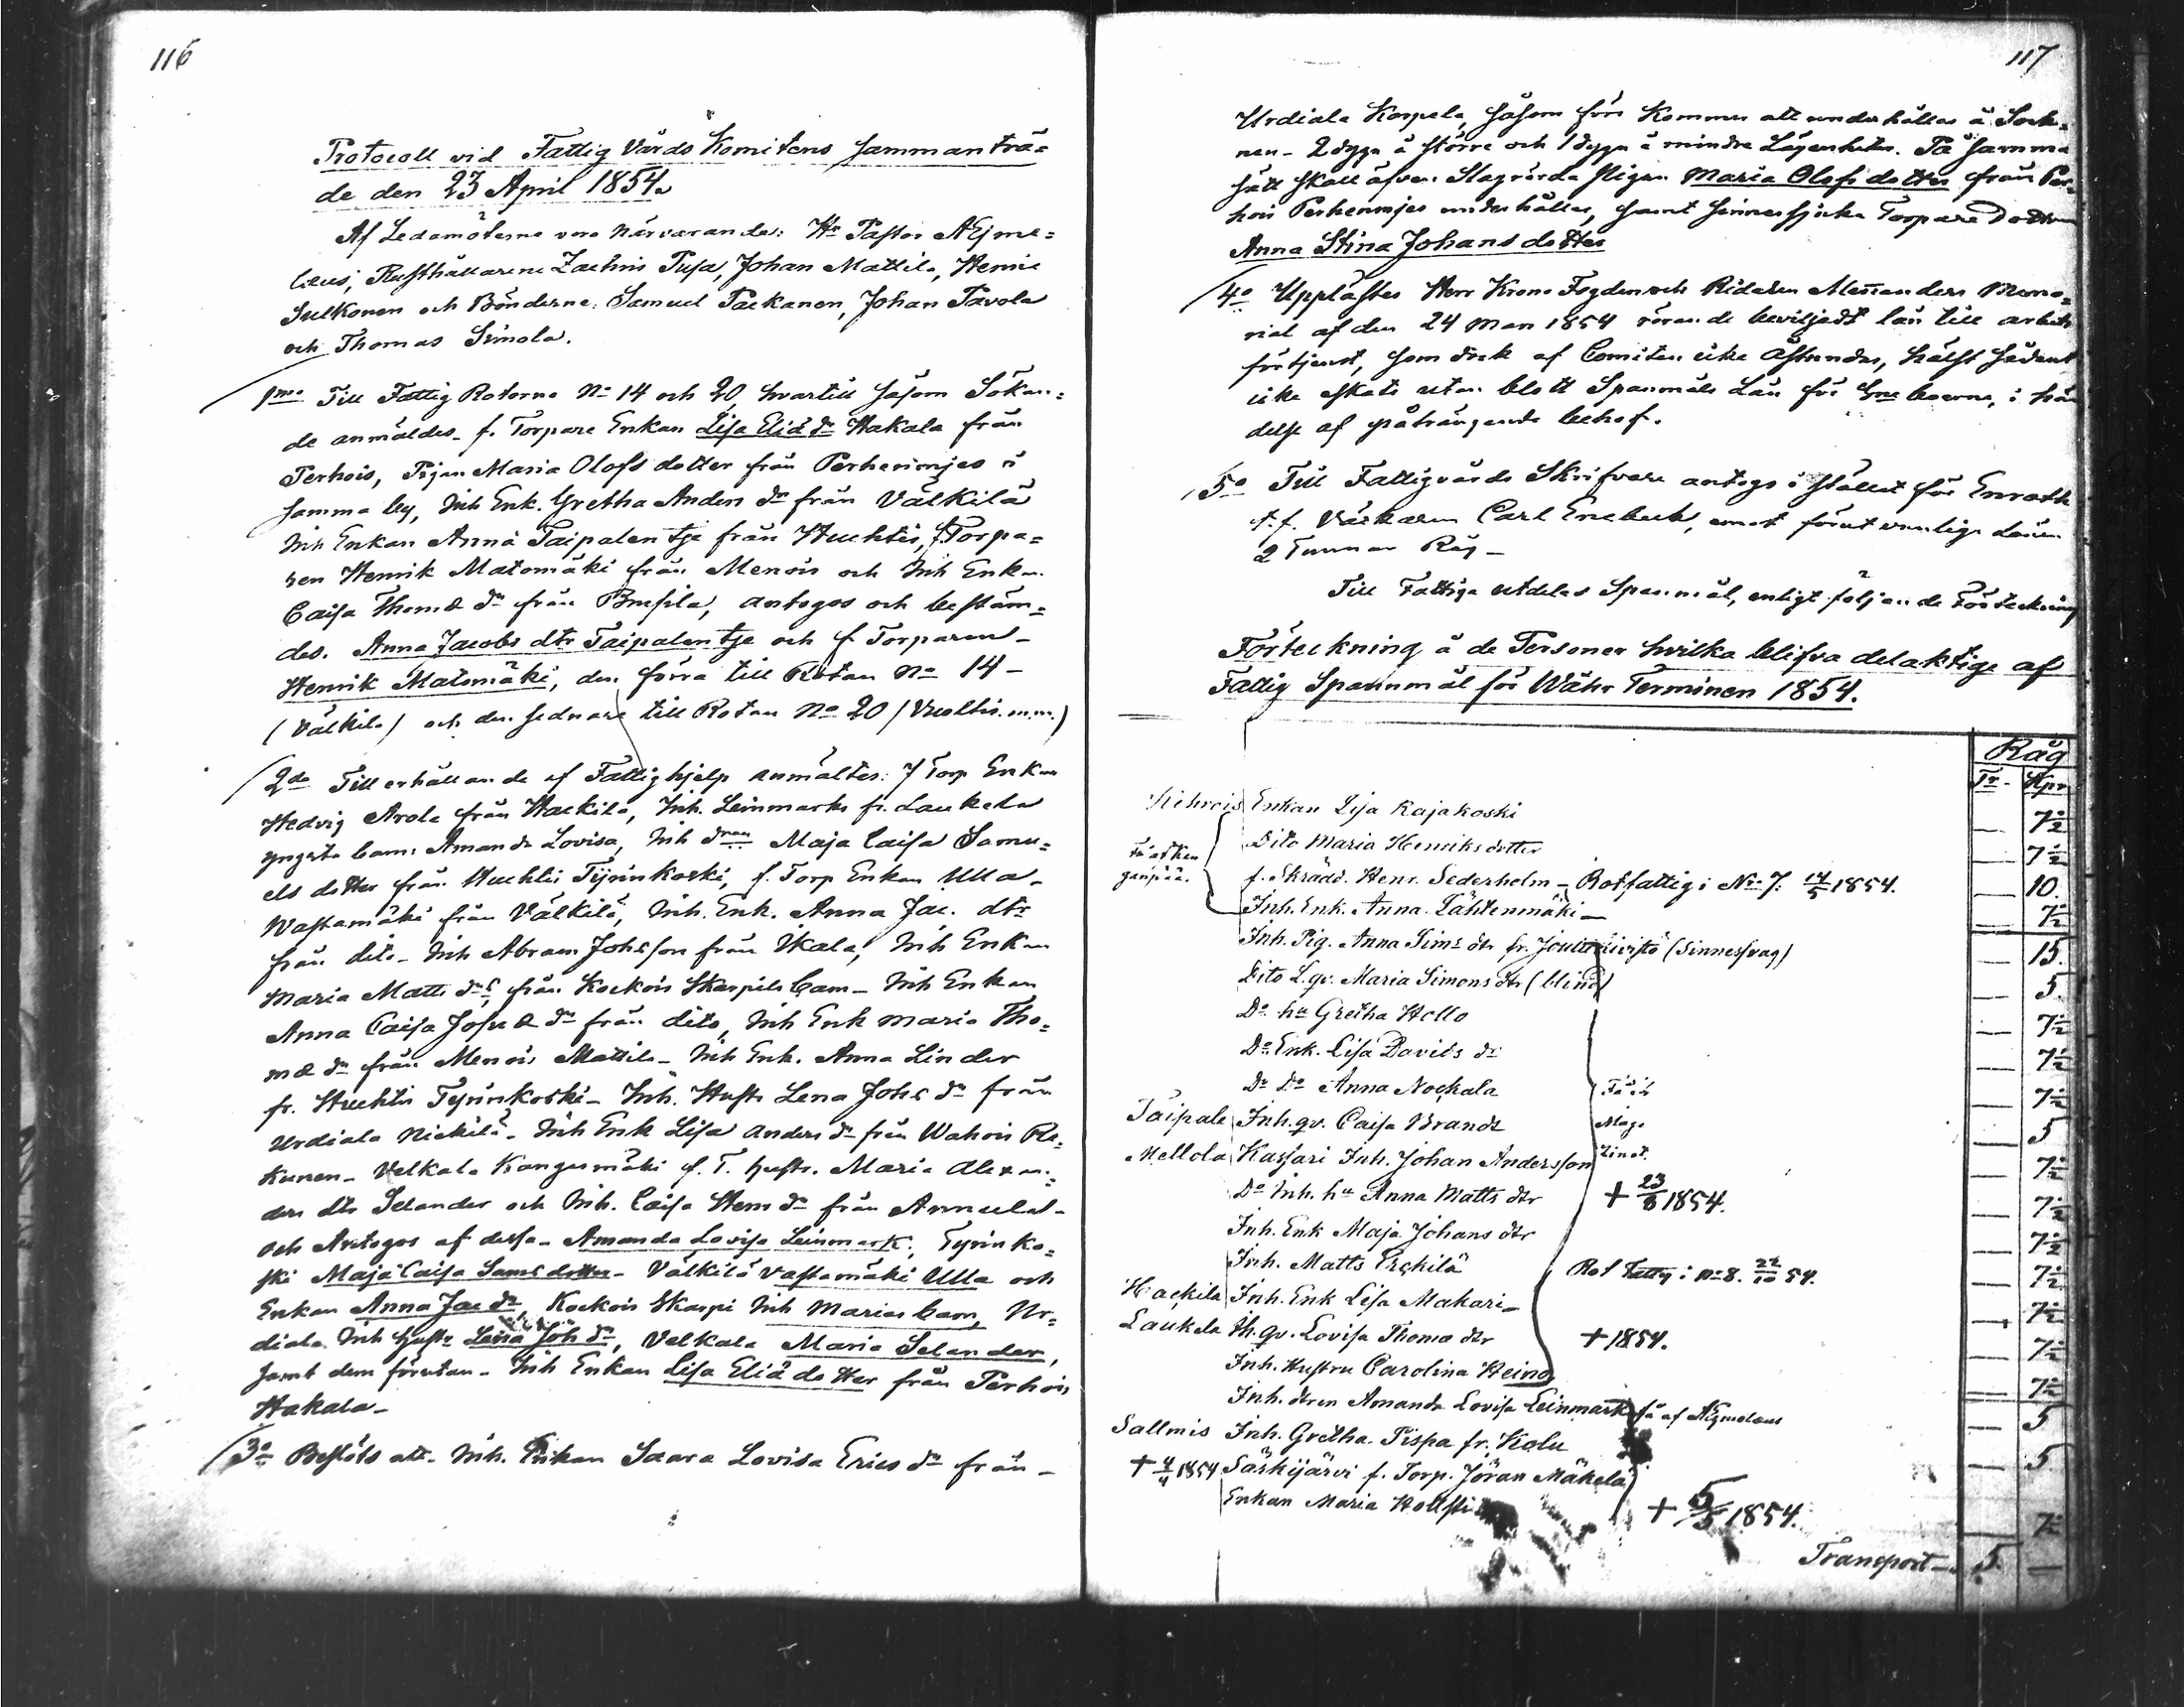 116
Protocoll vid Fattig Vårds Komitens samman trä=
de den 23 April 1854.
Af Ledamöterne voro närvarande: Hr Pastor
Rusthållarene Zachris Pusa, Johan Mattila, Henric
Sulkonen och Bönderne Samuel Packanen, Johan Pavola
och Thomas Simola.
1mo Till Fattig Rotorne No 14 och 20 hvartill såsom Sökan=
de anmäldes f. Torpare Enkan Lisa Eliä dr Hakala från
Perhois, Pigan Maria Olofs dotter från i
samma by, Inh Enk. Gretha Anders dr från Välkilä
Inh Enkan Anna Taipalen tje från Huchtis, f. Torpa=
ren Henrik Matomäki från Menois och Inh Enkan
Caisa Thomæ dr från antogos och bestäm=
des. Anna Jacobs dtr Taipalen tje och f Torparen
Henrik Matomäki, den förra till Rotan No 14 -
(Välkilä) och den sednare till Rotan No 20 (Vuoltis m.m.)
2do Till erhållande af Fattighjelp anmältes: f Torp Enkan
Hedvig Arola från Hackila, Inh. Leinmarks fr. Laukela
yngsta barn Amanda Lovisa, Inh Maja Caisa Samu=
els dotter från Huchtis Tyrinkoski, f. Torp Enkan Ulla
Wastamäki från Välkilä, Inh. Enk. Anna Jac. dtr
från dito - Inh Abram Johsson från Ikala, Inh Enkan
Maria Matts drs från Kockois Skarpils barn - Inh Enkan
Anna Caisa Josu æ dr från dito, Inh Enk Maria Tho=
mæ dr från Menois Mattila - Inh Enk. Anna Linder
fr. Huchtis Tyrinkoski - Inh. Hustr Lena Johs dr från
Urdiala Nickilä - Inh Enk Lisa Anders dr från Wahois
Velkala Kangasmäki f. T. hustr. Maria Alexan=
ders dtr Selander och Inh. Caisa Henr dr från Annula
och Antogos af dessa - Amanda Lovisa Leinmark, Tyrinko=
ski Maja Caisa Sams dotter - Välkilä Vastamäki Ulla och
Enkan Anna Jac dr, Kockois Skarpi Inh Marias barn, Ur=
diala Inh hustr Lena Joh dr, Velkala Maria Selander,
samt dem förutan - Inh Enkan Lisa Eliä dotter från Perhois
Hakala -
3o Beslöts att Inh. Enkan Saara Lovisa Erics dr från -
117
Urdiala Korpela, såsom förr kommer att underhållas å Sock=
nen - 2 dygn å större och 1 dygn å mindre Lägenheter. På samma
sätt skall äfven Slagrörda Pigan Maria Olofs dotter från Per=
hois underhållas, samt sinnessjuka Torpare Dottren
Anna Stina Johans dotter
4o Upplästes Herr Krono Fogden och Riddaren Memo=
rial af den 24 Mars 1854 rörande beviljadt lån till arbets
förtjenst, som dock af Comiten icke åstundas, hälst sådant
icke utan blott Spanmåls Lån för boerne, i hän
delse af påträngande behof.
5o Till Fattigvårds Skrifvare antogs i stället för Enroth
f.f. Carl Enebeck, emot förut vanliga Lönen
2 Tunnor Råg -
Till Fattige utdelas Spanmål, enligt följande Förteckning
Förteckning å de Personer hvilka blifva delaktige af
Fattig Spannmål för Währ Terminen 1854.
Råg
Tr. Kpr
Enkan Lisa Rajakoski — 7½
Dito Maria Henriks dotter — 7½
f. Skrädd. Henr. Sederholm - Rotfattig i No 7. 14/5 1854. — 10.
Inh. Enk. Anna Lähtenmäki — 7½
Inh. Pig. Anna Sims dtr fr. (Sinnessvag) — 15.
Dito Lqv. Maria Simons dtr (blind) — 5.
Do hu Gretha Hollo — 7½
Do Enk. Lisa Davids dr — 7½
Do Do Anna Nockala — 7½
Taipale Inh. qv. Caisa Brandt — 5
Mellola Kassari Inh. Johan Andersson — 7½
Do Inh. hu Anna Matts dtr + 23/8 1854. — 7½
Inh. Enk Maja Johans dtr — 7½
Inh. Matts Erckilä Rot fattig i No 8. 22/10 54. — 7½
Hackila Inh. Enk Lisa Makari — 7½
Laukela Ih. qv. Lovisa Thomæ dtr + 1854. — 7½
Inh. Hustru Carolina Heino — 7½
Inh. dren Amanda Lovisa Leinmark — 5
Sallmis Inh. Gretha Pispa fr. Kolu — 5
+ 4/4 1854 Särkijärvi f. Torp. Jöran Mäkelä
Enkan Maria + 5/5 1854. — 7½
Transport — 5. —